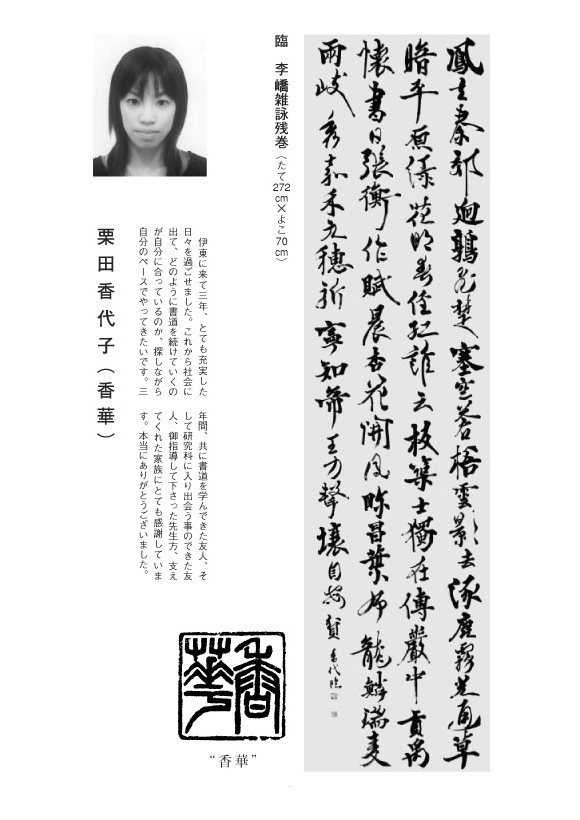 鳳出秦郊迥鶉飛楚塞空蒼梧雲影去涿鹿霧光通草
暗平原緑花明春徑紅誰云板築士獨在傅巖中貢禹
懐書日張衡作賦晨杏花開鳳軫昌葉布龍鱗瑞麦
両岐秀嘉禾九穂新寧知帝王力撃壌自安貧 香代臨
臨 李嶠雑詠残巻(たて272cm×よこ70cm)
伊東に来て三年、とても充実した
日々を過ごせました。これから社会に
出て、どのように書道を続けていくの
が自分に合っているのか、探しながら
自分のペースでやってきたいです。三
年間、共に書道を学んできた友人、そ
して研究科に入り出会う事のできた友
人、御指導して下さった先生方、支え
てくれた家族にとても感謝していま
す。本当にありがとうございました。
栗田香代子(香華)
香華
“香華”